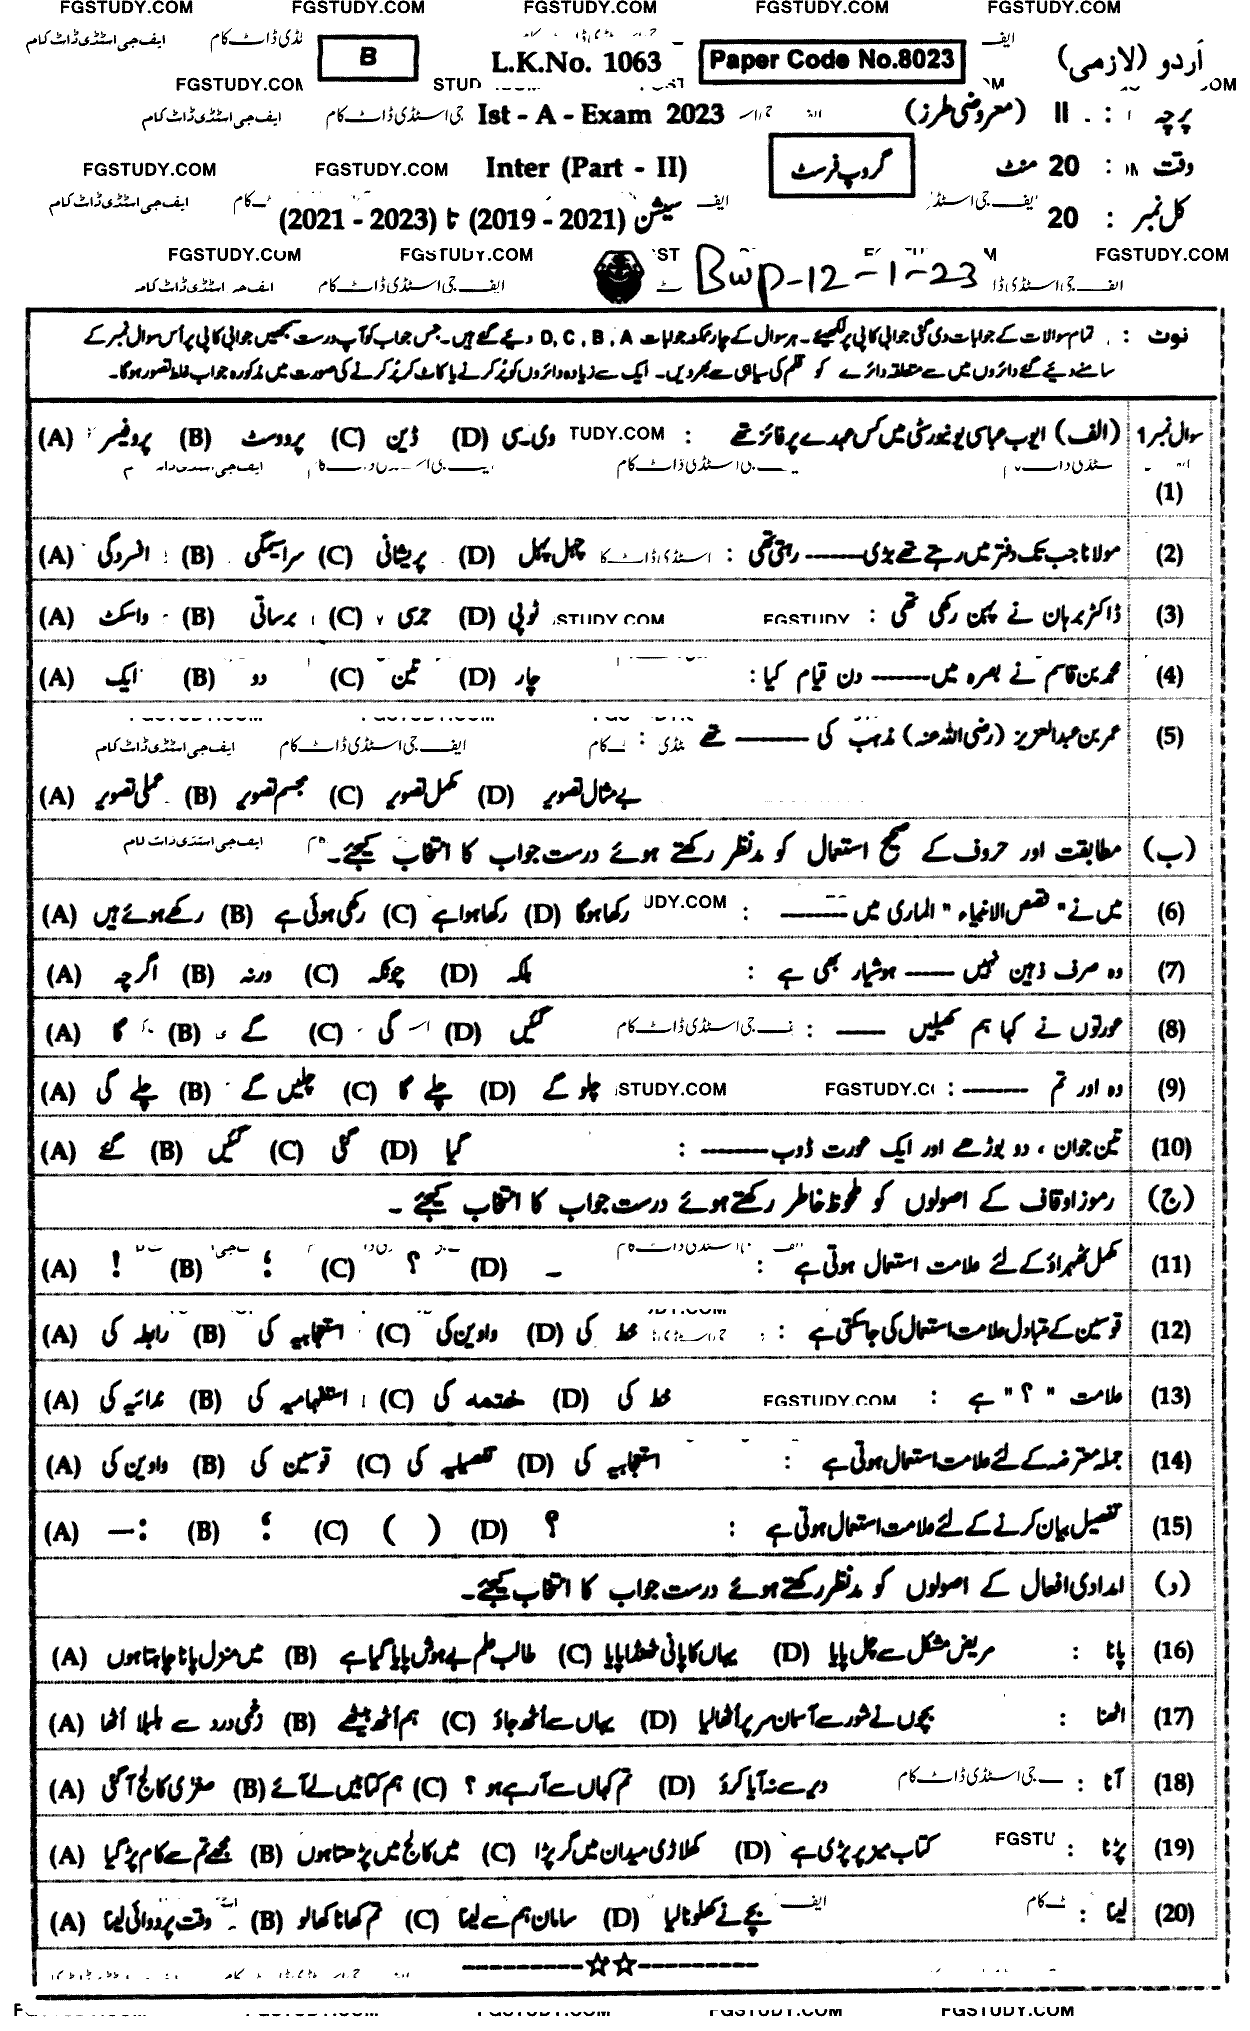 FGSTUDY.COM FGSTUDY.COM FGSTUDY.COM FGSTUDY.COM FGSTUDY.COM
اُردو (لازمی) Paper Code No.8023 L.K.No. 1063 B
پرچہ : II (معروضی طرز) Ist - A - Exam 2023
وقت : 20 منٹ گروپ فرسٹ Inter (Part - II) FGSTUDY.COM FGSTUDY.COM
کل نمبر : 20 سیشن (2019 - 2021) تا (2021 - 2023)
FGSTUDY.COM FGSTUDY.COM FGSTUDY.COM
Bwp-12-1-23
نوٹ : تمام سوالات کے جوابات دی گئی جوابی کاپی پر لکھیئے۔ ہر سوال کے چار ممکنہ جوابات D, C, B, A دیئے گئے ہیں۔ جس جواب کو آپ درست سمجھیں جوابی کاپی پر اُس سوال نمبر کے
سامنے دیئے گئے دائروں میں سے متعلقہ دائرے کو قلم کی سیاہی سے بھر دیں۔ ایک سے زیادہ دائروں کو پُر کرنے یا کاٹ کر پُر کرنے کی صورت میں مذکورہ جواب غلط تصور ہوگا۔
سوال نمبر 1 (الف) ایوب عباسی یونیورسٹی میں کس عہدے پر فائز تھے : (A) پروفیسر (B) پرووسٹ (C) ڈین (D) وی۔سی
(1)
(2) مولانا جب تک دفتر میں رہتے تھے بڑی ——— رہتی تھی : (A) افسردگی (B) سراسیمگی (C) پریشانی (D) چہل پہل
(3) ڈاکٹر برہان نے پہن رکھی تھی : (A) واسکٹ (B) برساتی (C) جرسی (D) ٹوپی
(4) محمد بن قاسم نے بصرہ میں ——— دن قیام کیا : (A) ایک (B) دو (C) تین (D) چار
(5) عمر بن عبدالعزیز (رضی اللہ عنہ) مذہب کی ——— تھے :
(A) عملی تصویر (B) مجسم تصویر (C) مکمل تصویر (D) بے مثال تصویر
(ب) مطابقت اور حروف کے صحیح استعمال کو مدنظر رکھتے ہوئے درست جواب کا انتخاب کیجئے۔
(6) میں نے "قصص الانبیاء" الماری میں ——— : (A) رکھے ہوئے ہیں (B) رکھی ہوئی ہے (C) رکھا ہوا ہے (D) رکھا ہوگا
(7) وہ صرف ذہین نہیں ——— ہوشیار بھی ہے : (A) اگرچہ (B) ورنہ (C) چونکہ (D) بلکہ
(8) عورتوں نے کہا ہم کھیلیں ——— : (A) گا (B) گے (C) گی (D) گئیں
(9) وہ اور تم ——— : (A) چلے گی (B) چلیں گے (C) چلے گا (D) چلو گے
(10) تین جوان ، دو بوڑھے اور ایک عورت ڈوب ——— : (A) گئے (B) گئیں (C) گئی (D) گیا
(ج) رموز اوقاف کے اصولوں کو ملحوظ خاطر رکھتے ہوئے درست جواب کا انتخاب کیجئے ۔
(11) مکمل ٹھہراؤ کے لئے علامت استعمال ہوتی ہے : (A) ! (B) ؛ (C) ؟ (D) ۔
(12) قوسین کے متبادل علامت استعمال کی جاسکتی ہے : (A) رابطہ کی (B) استجابیہ کی (C) واوین کی (D) خط کی
(13) علامت " ؟ " ہے : (A) ندائیہ کی (B) استفہامیہ کی (C) ختمہ کی (D) خط کی
(14) جملہ معترضہ کے لئے علامت استعمال ہوتی ہے : (A) واوین کی (B) قوسین کی (C) تفصیلیہ کی (D) استجابیہ کی
(15) تفصیل بیان کرنے کے لئے علامت استعمال ہوتی ہے : (A) :— (B) ؛ (C) ( ) (D) ؟
(د) امدادی افعال کے اصولوں کو مدنظر رکھتے ہوئے درست جواب کا انتخاب کیجئے۔
(16) پانا : (A) میں منزل پانا چاہتا ہوں (B) طالب علم بے ہوش پایا گیا ہے (C) یہاں کا پانی ٹھنڈا پایا (D) مریض مشکل سے چل پایا
(17) اٹھنا : (A) زخمی درد سے بلبلا اُٹھا (B) ہم اُٹھ بیٹھے (C) یہاں سے اُٹھ جاؤ (D) بچوں نے شور سے آسمان سر پر اُٹھا لیا
(18) آنا : (A) صغرٰی کالج آگئی (B) ہم کتابیں لے آئے (C) تم کہاں سے آرہے ہو ؟ (D) دیر سے نہ آیا کرو
(19) پڑنا : (A) مجھے تم سے کام پڑ گیا (B) میں کالج میں پڑھتا ہوں (C) کھلاڑی میدان میں گر پڑا (D) کتاب میز پر پڑی ہے
(20) لینا : (A) وقت پر دوائی لینا (B) تم کھانا کھا لو (C) سامان ہم سے لینا (D) بچے نے کھلونا لیا
---------☆☆---------
FGSTUDY.COM FGSTUDY.COM